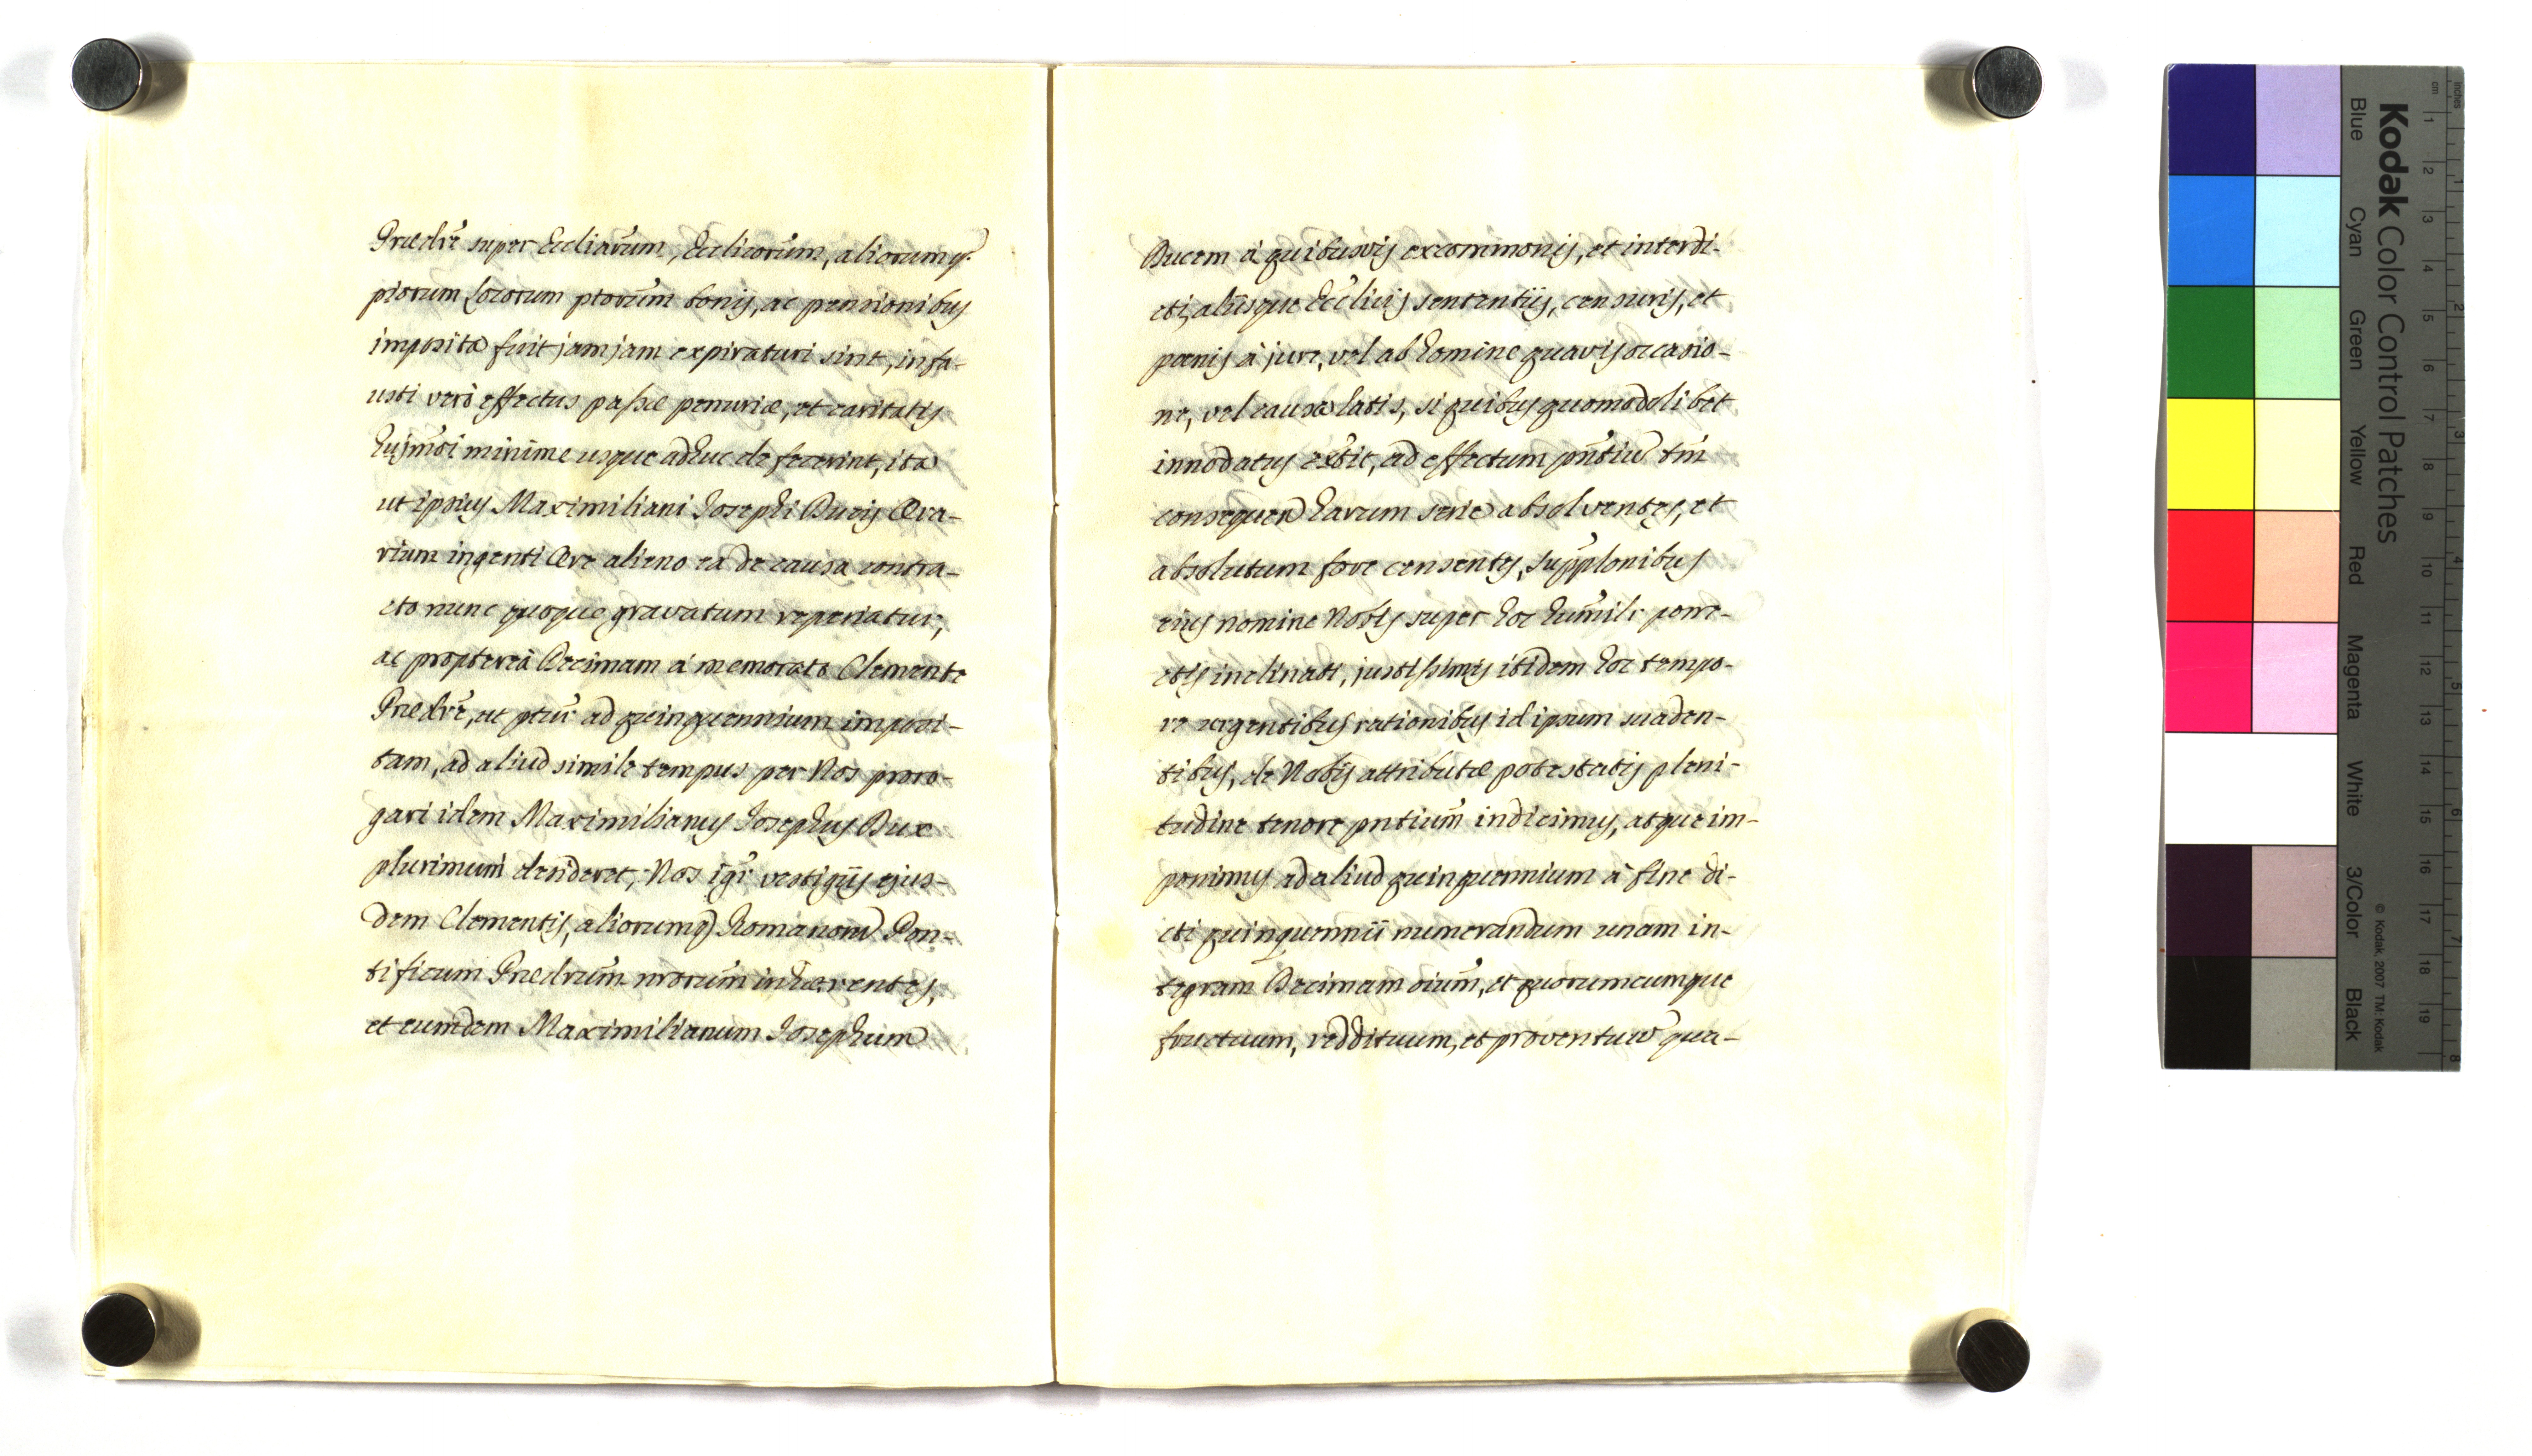 Prædre super Ecclíarum, Ecclicorum, aliorumq.
piorum Locorum ptorum bonis, ac pensionibus
imposita fuit jamjam expiraturi sint, infa-
usti verò effectus passæ penuriæ, et caritatis
hujmòi minime usque adhuc defecerint, ita
ut ipsius Maximiliani Josephi Ducis Æra-
rium ingenti Ære alieno ea de causa contra-
cto nunc quoque gravatum reperiatur;
ac proptereà Decimam a memorato Clemente
Prædre, ut ptur ad quinquennium imposi-
tam, ad aliud simile tempus per Nos proro-
gari idem Maximilianus Josephus Dux
plurimum desideret; Nos igr vestigiis ejus-
dem Clementis, aliorumq Romanorum Pon-
tificum Prædrum nrorum inhærentes,
et eumdem Maximilianum Josephum
Ducem à quibusvis excommonis, et interdi-
cti, aliisque Ecclicis sententiis, censuris, et
pœnis à jure, vel ab homine quavis occasio-
ne, vel causa latis, si quibus quomodolibet
innodatus extit, ad effectum pntium tm
consequen harum serie absolventes, et
absolutum fore censentes, supplonibus
eius nomine Nobis super hoc humilr porre-
ctis inclinati, justissimis itidem hoc tempo-
re urgentibus rationibus id ipsum suaden-
tibus, de Nobis attributæ potestatis pleni-
tudine tenore pntium indicimus, atque im-
ponimus ad aliud quinquennium à fine di-
cti quinquennii numerandum unam in-
tegram Decimam oium, et quorumcumque
fructuum, reddituum, et proventuum qua-
Kodak Color Control Patches
Blue Cyan Green Yellow Red Magenta White 3/Color Black
© Kodak, 2007 TM: Kodak
inches
cm
1 2 3 4 5 6 7 8 9 10 11 12 13 14 15 16 17 18 19
1 2 3 4 5 6 7 8